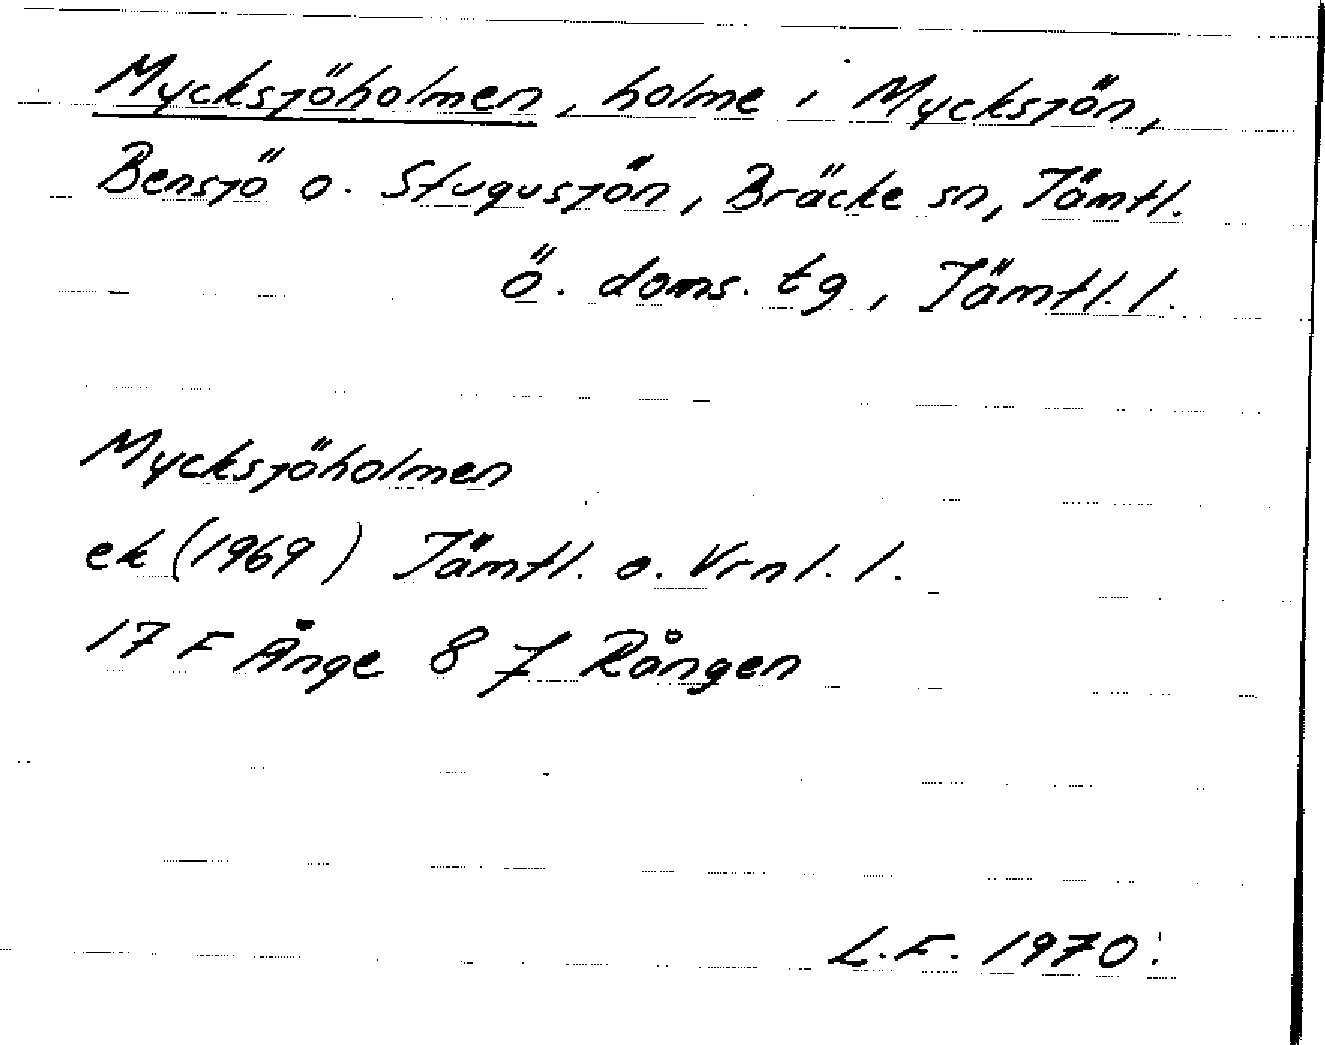 Mycksjöholmen, holme i Mycksjön,
Bensjö o. Stugusjön, Bräcke sn, Jämtl.
ö. doms. tg, Jämtl. l.
Mycksjöholmen
ek (1969) Jämtl. o. Vrnl. l.
17 F Ånge 8 f Rången
L.F. 1970.